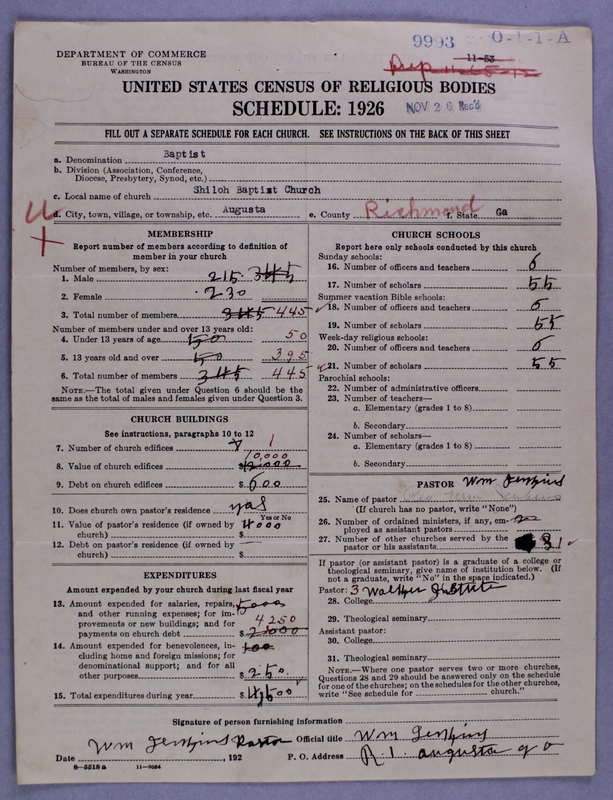 9993 0-1-1-A
DEPARTMENT OF COMMERCE
BUREAU OF THE CENSUS
WASHINGTON
11-53
UNITED STATES CENSUS OF RELIGIOUS BODIES
SCHEDULE: 1926
NOV 26 Rec'd
FILL OUT A SEPARATE SCHEDULE FOR EACH CHURCH. SEE INSTRUCTIONS ON THE BACK OF THIS SHEET
a. Denomination Baptist
b. Division (Association, Conference, Diocese, Presbytery, Synod, etc.)
c. Local name of church Shiloh Baptist Church
d. City, town, village, or township, etc. Augusta e. County Richmond f. State Ga
MEMBERSHIP
Report number of members according to definition of
member in your church
Number of members, by sex:
1. Male 215 345
2. Female 230
3. Total number of members 345 445
Number of members under and over 13 years old:
4. Under 13 years of age 50 50
5. 13 years old and over 50 395
6. Total number of members 345 445
NOTE.—The total given under Question 6 should be
same as the total of males and females given under Question 3.
CHURCH BUILDINGS
See instructions, paragraphs 10 to 12
7. Number of church edifices 1
10,000
8. Value of church edifices $
9. Debt on church edifices $ 600
10. Does church own pastor's residence? yas
Yes or No
11. Value of pastor's residence (if owned by
church) $ 4000
12. Debt on pastor's residence (if owned by
church) $
EXPENDITURES
Amount expended by your church during last fiscal year
13. Amount expended for salaries, repairs, 5000
and other running expenses; for im-
provements or new buildings; and for 4250
payments on church debt $
14. Amount expended for benevolences, in- 100
cluding home and foreign missions; for
denominational support; and for all
other purposes $ 250
15. Total expenditures during year $ 4500
CHURCH SCHOOLS
Report here only schools conducted by this church
Sunday schools:
16. Number of officers and teachers 6
17. Number of scholars 55
Summer vacation Bible schools:
18. Number of officers and teachers 6
19. Number of scholars 55
Week-day religious schools:
20. Number of officers and teachers 6
21. Number of scholars 55
Parochial schools:
22. Number of administrative officers
23. Number of teachers—
a. Elementary (grades 1 to 8)
b. Secondary
24. Number of scholars—
a. Elementary (grades 1 to 8)
b. Secondary
PASTOR Wm Jenkins
25. Name of pastor
(If church has no pastor, write "None")
26. Number of ordained ministers, if any, em-
ployed as assistant pastors
27. Number of other churches served by the
pastor or his assistants 1
If pastor (or assistant pastor) is a graduate of a college or
theological seminary, give name of institution below. (If
not a graduate, write "No" in the space indicated.)
Pastor: 3 Walker
28. College
29. Theological seminary
Assistant pastor:
30. College
31. Theological seminary
NOTE.—Where one pastor serves two or more churches,
Questions 28 and 29 should be answered only on the schedule
for one of the churches; on the schedules for the other churches,
write "See schedule for church."
Signature of person furnishing information
Wm Jenkins Pastor Official title Wm Jenkins
Date , 192 P. O. Address R. 1 augusta ga
8—5518 a 11—9084